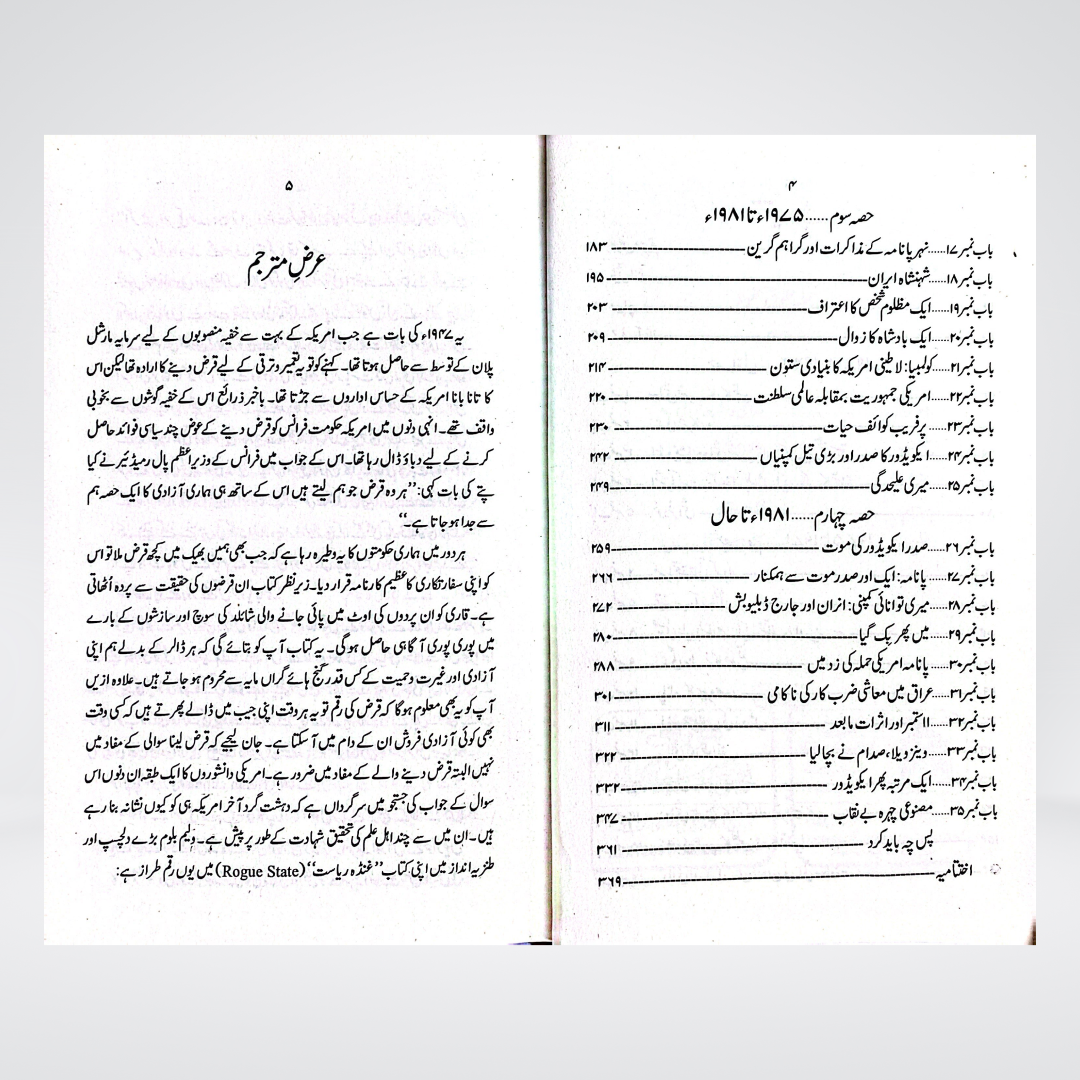 ۴
حصہ سوم......۱۹۷۵ء تا ۱۹۸۱ء
باب نمبر ۱۷......نہر پانامہ کے مذاکرات اور گراہم گرین ۱۸۳
باب نمبر ۱۸......شہنشاہ ایران ۱۹۵
باب نمبر ۱۹......ایک مظلوم شخص کا اعتراف ۲۰۳
باب نمبر ۲۰......ایک بادشاہ کا زوال ۲۰۹
باب نمبر ۲۱......کولمبیا: لاطینی امریکہ کا بنیادی ستون ۲۱۴
باب نمبر ۲۲......امریکی جمہوریت بمقابلہ عالمی سلطنت ۲۲۰
باب نمبر ۲۳...... پرفریب کوائف حیات ۲۳۰
باب نمبر ۲۴......ایکویڈور کا صدر اور بڑی تیل کمپنیاں ۲۴۲
باب نمبر ۲۵......میری علیحدگی ۲۴۹
حصہ چہارم......۱۹۸۱ء تا حال
باب نمبر ۲۶......صدر ایکویڈور کی موت ۲۵۹
باب نمبر ۲۷...... پانامہ: ایک اور صدر موت سے ہمکنار ۲۶۶
باب نمبر ۲۸......میری توانائی کمپنی: انران اور جارج ڈبلیو بش ۲۷۲
باب نمبر ۲۹......میں پھر بک گیا ۲۸۰
باب نمبر ۳۰......پانامہ امریکی حملہ کی زد میں ۲۸۸
باب نمبر ۳۱......عراق میں معاشی ضرب کار کی ناکامی ۳۰۱
باب نمبر ۳۲......۱۱ ستمبر اور اثرات مابعد ۳۱۱
باب نمبر ۳۳......وینزویلا، صدام نے بچا لیا ۳۲۲
باب نمبر ۳۴......ایک مرتبہ پھر ایکویڈور ۳۳۲
باب نمبر ۳۵......مصنوعی چہرہ بے نقاب ۳۴۷
پس چہ باید کرد ۳۶۱
اختتامیہ ۳۶۹
۵
عرضِ مترجم
یہ ۱۹۴۷ء کی بات ہے جب امریکہ کے بہت سے خفیہ منصوبوں کے لیے سرمایہ مارشل
پلان کے توسط سے حاصل ہوتا تھا۔ کہنے کو تو یہ تعمیر و ترقی کے لیے قرض دینے کا ارادہ تھا لیکن اس
کا تانا بانا امریکہ کے حساس اداروں سے جڑتا تھا۔ باخبر ذرائع اس کے خفیہ گوشوں سے بخوبی
واقف تھے۔ انہی دنوں میں امریکہ حکومت فرانس کو قرض دینے کے عوض چند سیاسی فوائد حاصل
کرنے کے لیے دباؤ ڈال رہا تھا۔ اس کے جواب میں فرانس کے وزیراعظم پال رمیڈئیر نے کیا
پتے کی بات کہی: ’’ہر وہ قرض جو ہم لیتے ہیں اس کے ساتھ ہی ہماری آزادی کا ایک حصہ ہم
سے جدا ہو جاتا ہے۔‘‘
ہر دور میں ہماری حکومتوں کا یہ وطیرہ رہا ہے کہ جب بھی ہمیں بھیک میں کچھ قرض ملا تو اس
کو اپنی سفارتکاری کا عظیم کارنامہ قرار دیا۔ زیرِ نظر کتاب ان قرضوں کی حقیقت سے پردہ اُٹھاتی
ہے۔ قاری کو ان پردوں کی اوٹ میں پائی جانے والی شائلد کی سوچ اور سازشوں کے بارے
میں پوری پوری آگاہی حاصل ہوگی۔ یہ کتاب آپ کو بتائے گی کہ ہر ڈالر کے بدلے ہم اپنی
آزادی اور غیرت و حمیت کے کس قدر گنج ہائے گراں مایہ سے محروم ہو جاتے ہیں۔ علاوہ ازیں
آپ کو یہ بھی معلوم ہوگا کہ قرض کی رقم تو یہ ہر وقت اپنی جیب میں ڈالے پھرتے ہیں کہ کسی وقت
بھی کوئی آزادی فروش ان کے دام میں آ سکتا ہے۔ جان لیجیے کہ قرض لینا سوالی کے مفاد میں
نہیں البتہ قرض دینے والے کے مفاد میں ضرور ہے۔ امریکی دانشوروں کا ایک طبقہ ان دنوں اس
سوال کے جواب کی جستجو میں سرگرداں ہے کہ دہشت گرد آخر امریکہ ہی کو کیوں نشانہ بنا رہے
ہیں۔ ان میں سے چند اہل علم کی تحقیق شہادت کے طور پر پیش ہے۔ ولیم بلوم بڑے دلچسپ اور
طنزیہ انداز میں اپنی کتاب ’’غنڈہ ریاست‘‘ (Rogue State) میں یوں رقم طراز ہے: